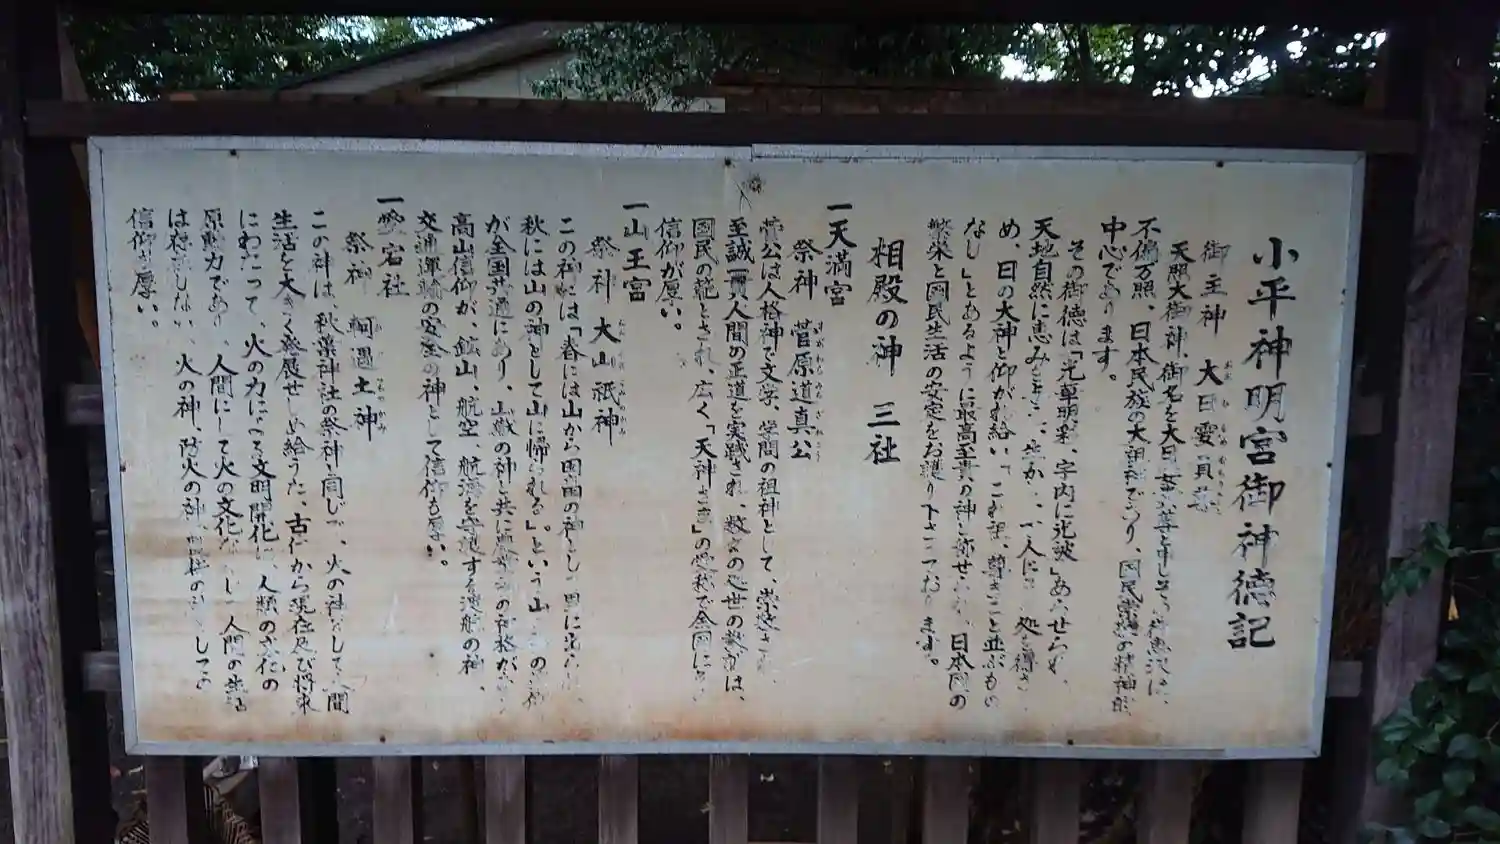 小平神明宮御神徳記
御主神 大日孁貴尊
天照大御神、御名を大日孁貴尊と申し
不偏万照、日本民族の大祖神であり、国民崇敬の精神的
中心であります。
その御徳は「光華明彩、宇内に光被」あらせられ、
天地自然に恵みときき
め、日の大神と仰がれ給い「これ程、尊きこと並ぶもの
なし」とあるように最高至貴の神と称せられ、日本国の
繁栄と国民生活の安定をお護り下さっております。
相殿の神 三社
一天満宮
祭神 菅原道真公
菅公は人格神で文学、学問の祖神として、崇敬され、
至誠一貫人間の正道を実践され、数々の処世の教訓は、
国民の範とされ、広く「天神さま」の愛称で全国に
信仰が厚い。
一山王宮
祭神 大山祇神
この神は「春には山から田の神として里に
秋には山の神として山に帰られる」。という山
が全国共通にあり、山嶽の神と共に の神格が
高山信仰が、鉱山、航空、航海を守護する渡航の神、
交通運輸の安全の神として信仰も厚い。
一愛宕社
祭神 軻遇土神
この神は、秋葉神社の祭神と同じで、火の神として人間
生活を大きく発展せしめ給うた、古代から現在及び将来
にわたって、火の力による文明開化は、人類の文化の
原動力であり、人間にして火の文化なしに人間の生活
は存在しない、火の神、防火の神、 としての
信仰が厚い。